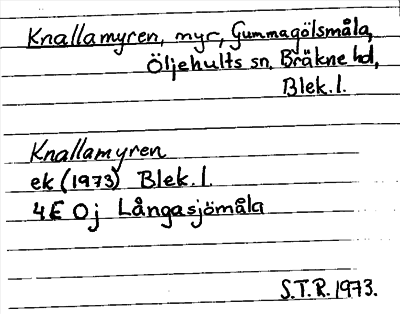 Knallamyren, myr, Gummagölsmåla,
Öljehults sn, Bräkne hd,
Blek. l.
Knallamyren
ek (1973) Blek. l.
4E Oj Långasjömåla
S.T.R. 1973.